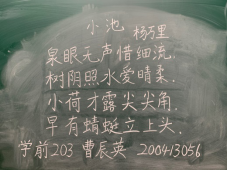 小池 杨万里
泉眼无声惜细流.
树阴照水爱晴柔.
小荷才露尖尖角.
早有蜻蜓立上头.
学前203 曹辰英 200413056